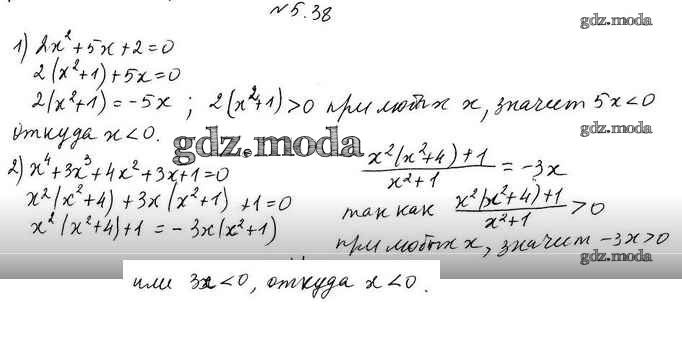 №5.38
gdz.moda
1) 2x² + 5x + 2 = 0
2(x²+1) + 5x = 0
2(x²+1) = -5x ; 2(x²+1) > 0 при любых x, значит 5x < 0
откуда x < 0.
gdz.moda
2) x⁴ + 3x³ + 4x² + 3x + 1 = 0
x²(x²+4) + 3x(x²+1) + 1 = 0
x²(x²+4) + 1 = -3x(x²+1)
(x²(x²+4)+1)/(x²+1) = -3x
так как (x²(x²+4)+1)/(x²+1) > 0
gdz.moda
при любых x, значит -3x > 0
gdz.moda
или 3x < 0, откуда x < 0.